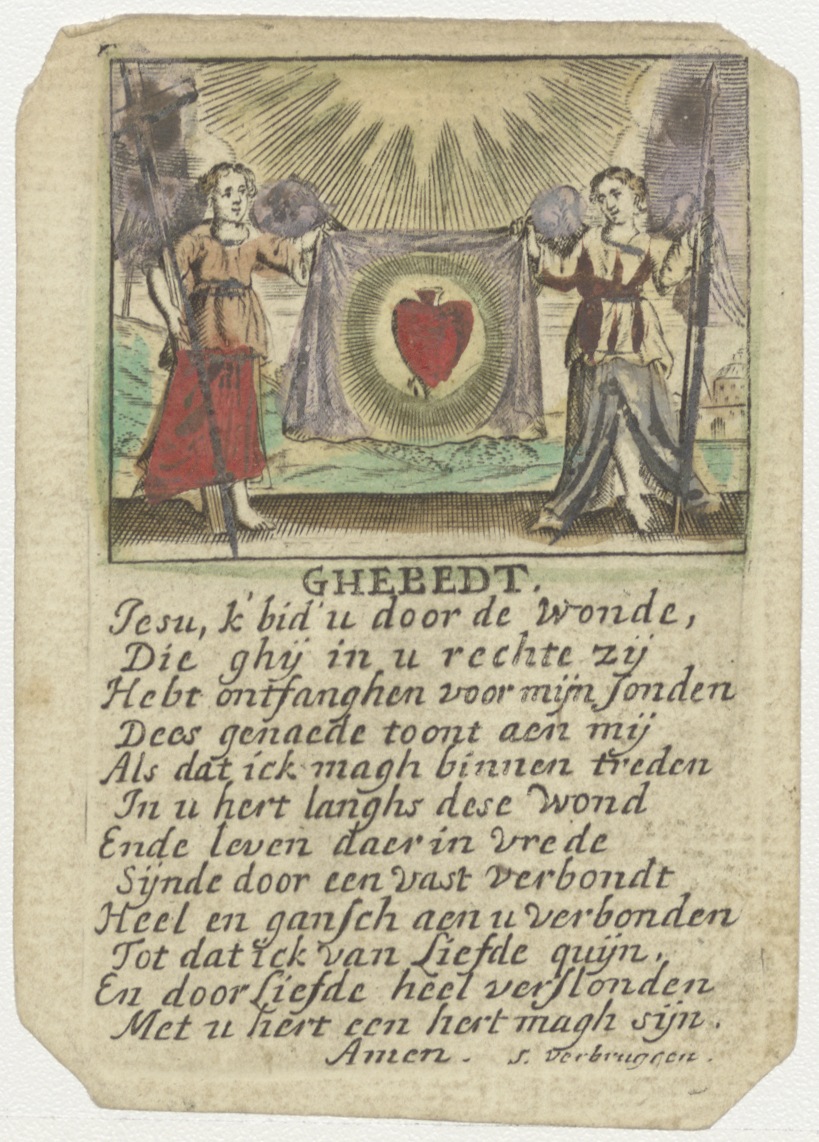 GHEBEDT.
Iesu, k' bid' u door de wonde,
Die ghij in u rechte zij
Hebt ontfanghen voor mijn sonden
Dees genaede toont aen mij
Als dat ick magh binnen treden
In u hert langhs dese wond
Ende leven daer in vrede
Sijnde door een vast verbondt
Heel en gansch aen u verbonden
Tot dat ick van Liefde quijn,
En door Liefde heel verslonden
Met u hert een hert magh sijn.
Amen. s. verbruggen.